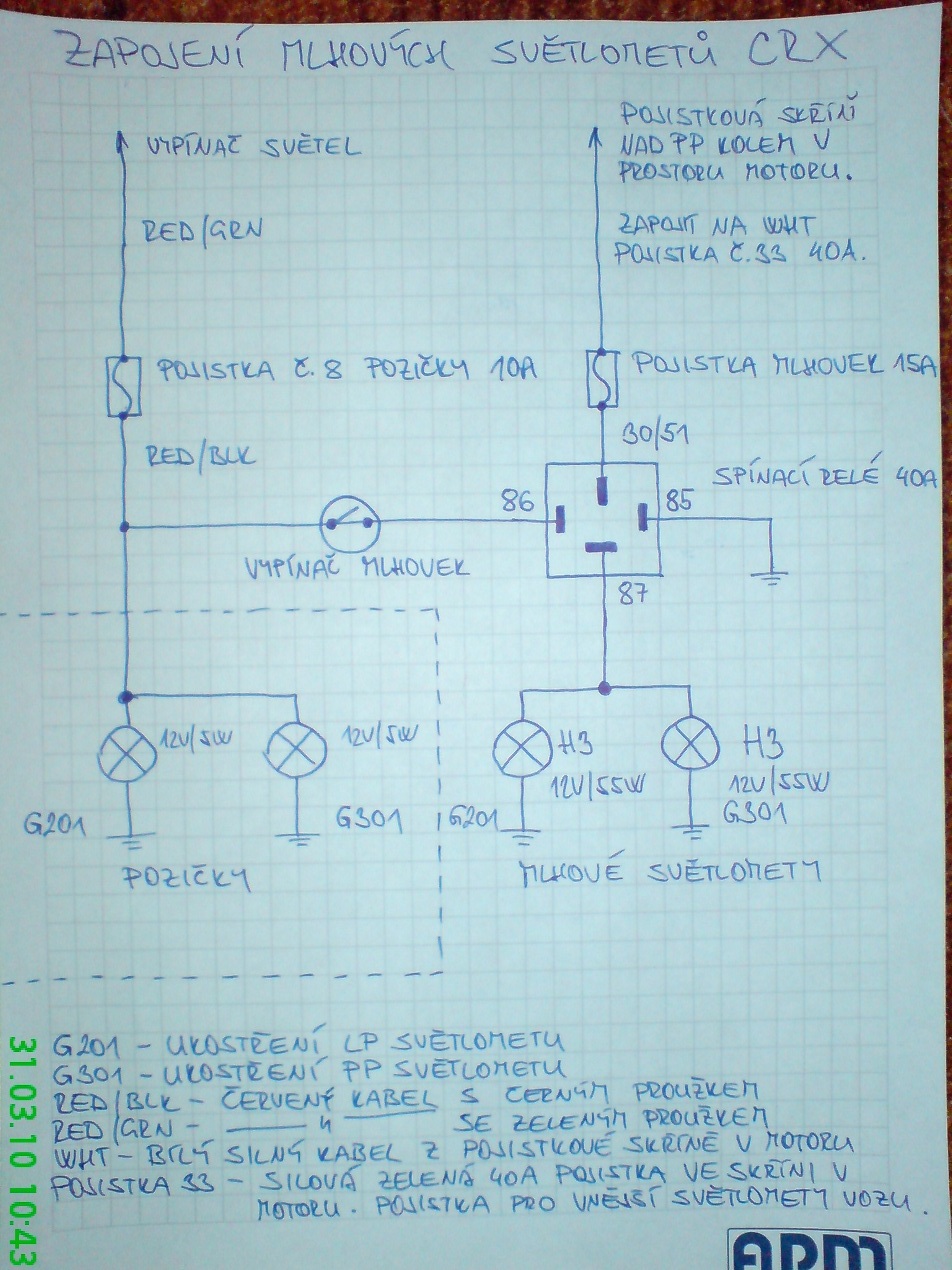 ZAPOJENÍ MLHOVÝCH SVĚTLOMETŮ CRX
VYPÍNAČ SVĚTEL
POJISTKOVÁ SKŘÍŇ
NAD PP KOLEM V
PROSTORU MOTORU.
RED/GRN
ZAPOJIT NA WHT
POJISTKA Č.33 40A.
POJISTKA Č.8 POZIČKY 10A
POJISTKA MLHOVEK 15A
RED/BLK
30/51
SPÍNACÍ RELÉ 40A
86
85
VYPÍNAČ MLHOVEK
87
12V/5W
12V/5W
H3
12V/55W
H3
12V/55W
G201
G301
G201
G301
POZIČKY
MLHOVÉ SVĚTLOMETY
G201 - UKOSTŘENÍ LP SVĚTLOMETU
G301 - UKOSTŘENÍ PP SVĚTLOMETU
RED/BLK - ČERVENÝ KABEL S ČERNÝM PROUŽKEM
RED/GRN - —— " —— SE ZELENÝM PROUŽKEM
WHT - BÍLÝ SILNÝ KABEL Z POJISTKOVÉ SKŘÍNĚ V MOTORU
POJISTKA 33 - SILOVÁ ZELENÁ 40A POJISTKA VE SKŘÍNI V
MOTORU. POJISTKA PRO VNĚJŠÍ SVĚTLOMETY VOZU.
31.03.10 10:43